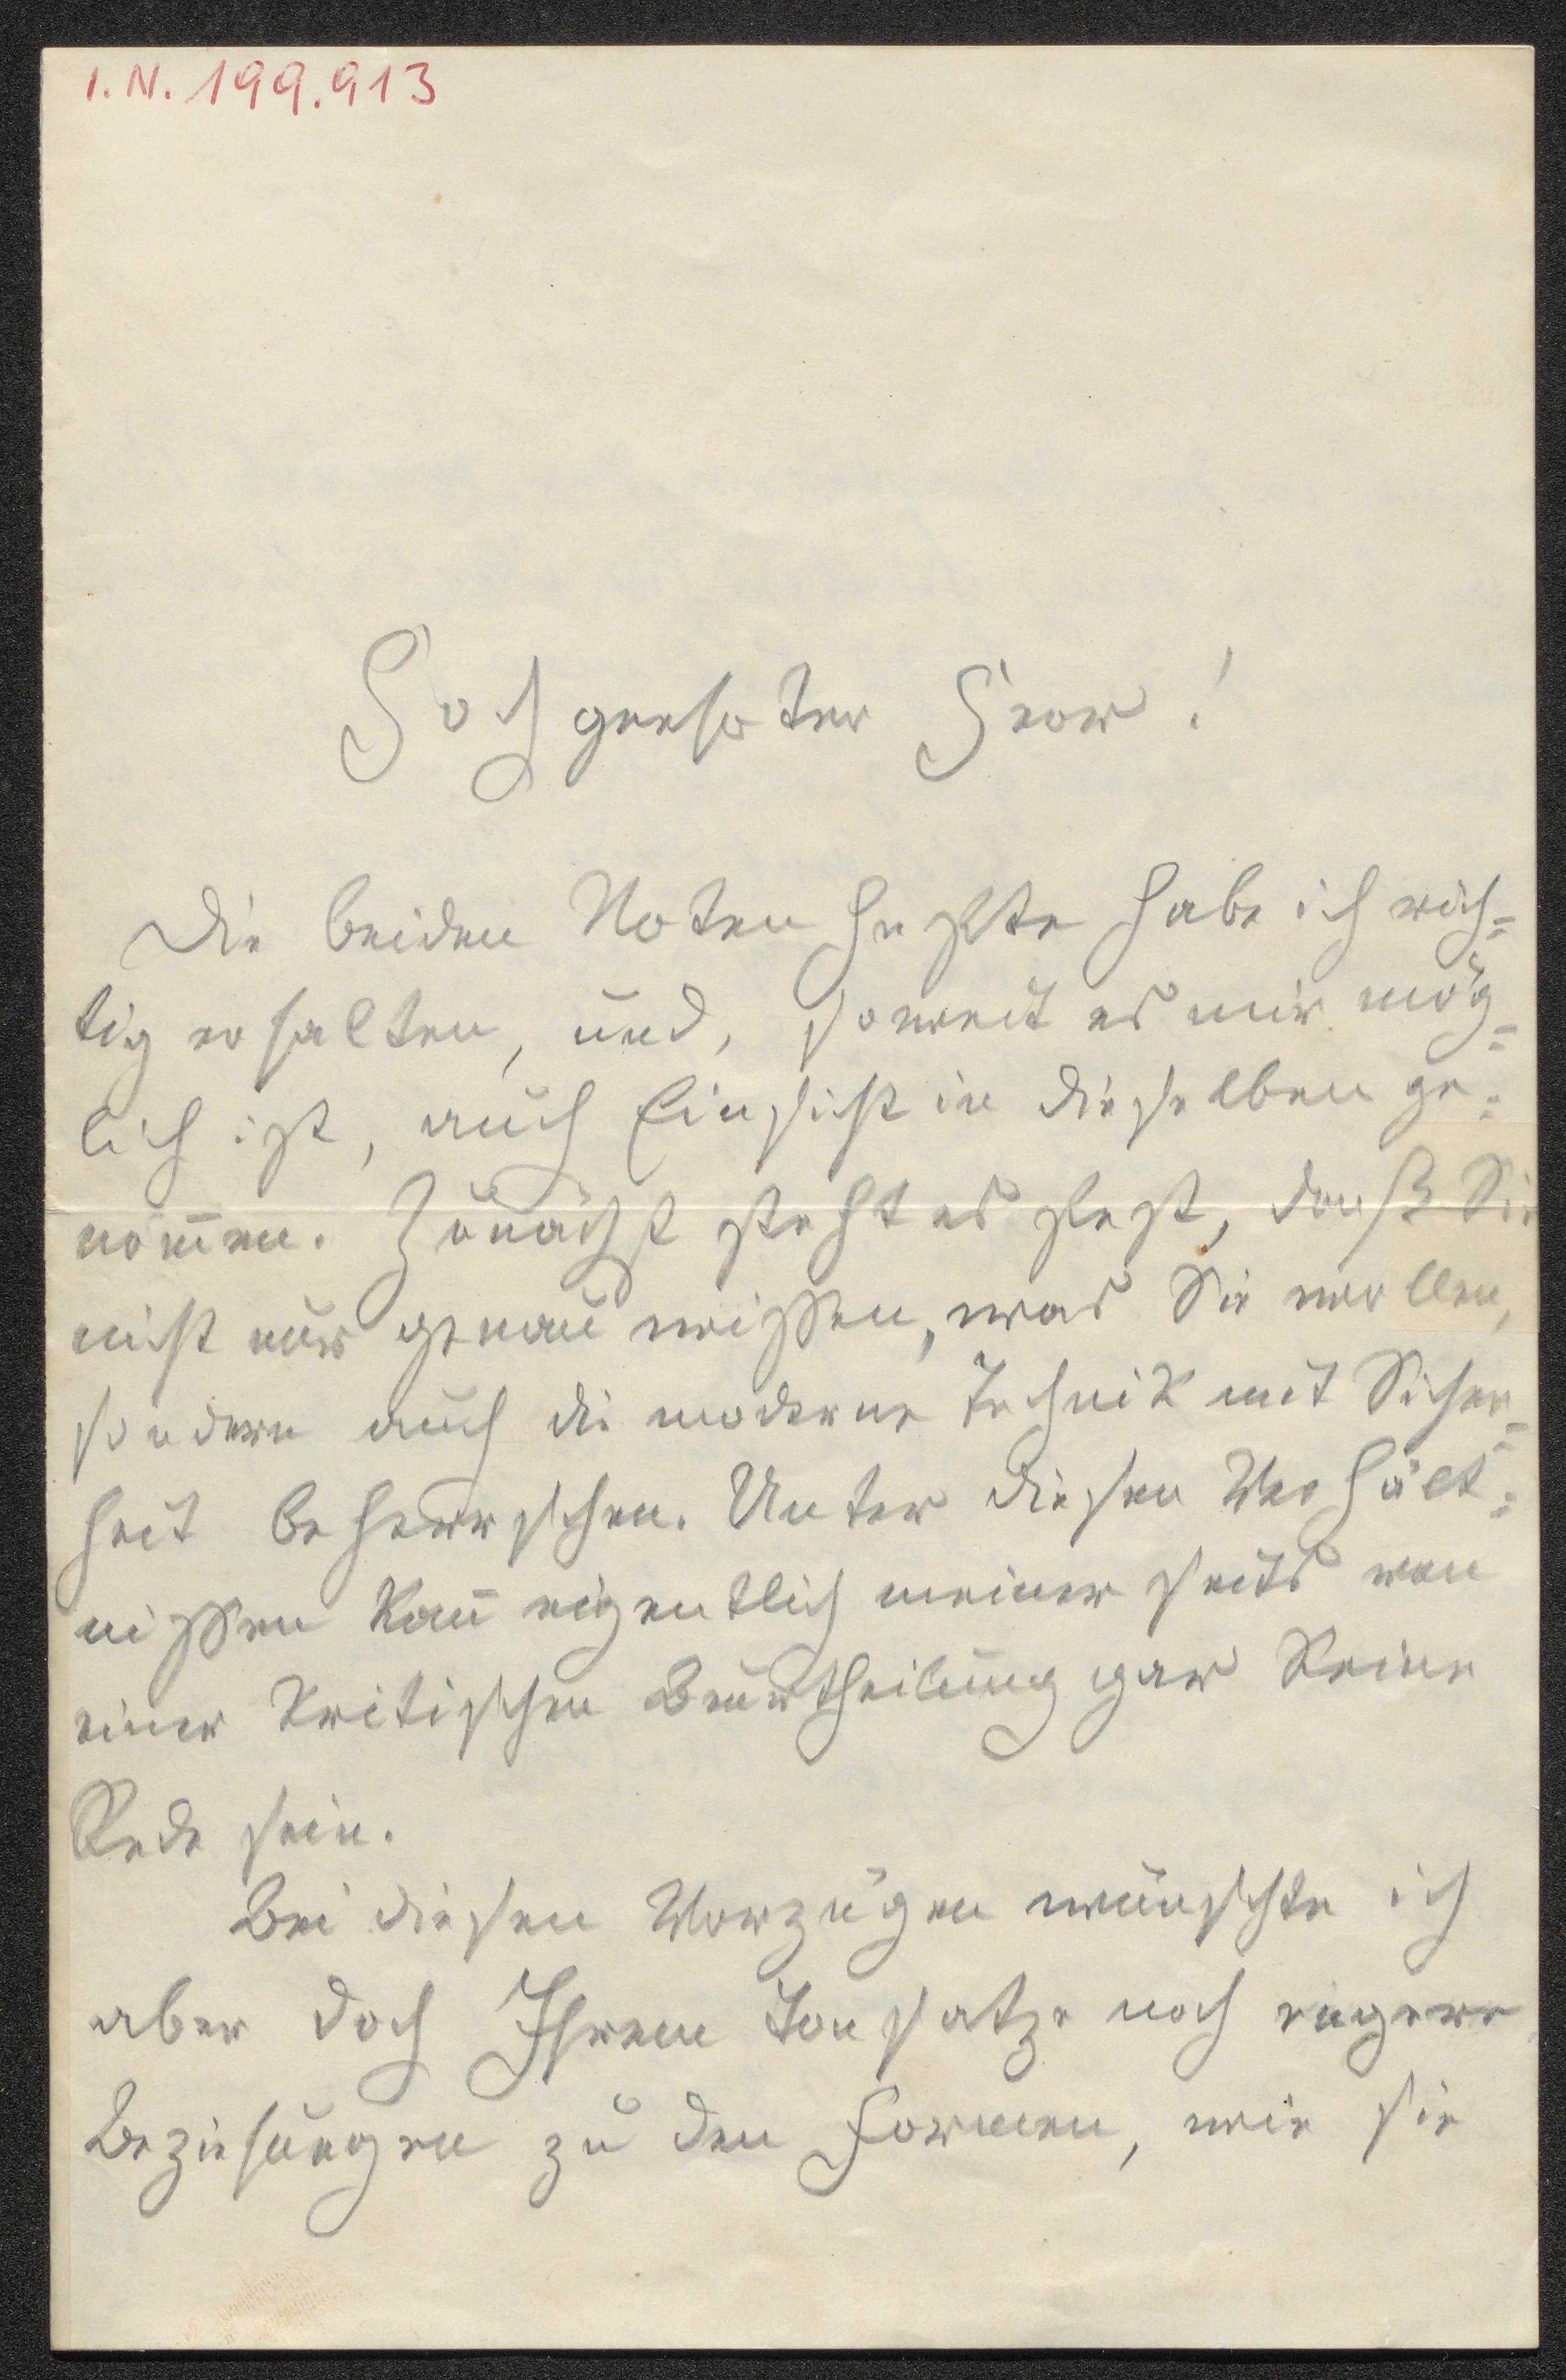 I.N. 199.913
Hochgeehrter Herr!
Die beiden Notenhefte habe ich rich=
tig erhalten, und, soweit es mir mög=
lich ist, auch Einsicht in dieselben ge=
nom̅en. Zunächst steht es fest, daß Sie
nicht nur genau wissen, was Sie wollen,
sondern auch die moderne Technik mit Sicher=
heit beherrschen. Unter diesen Verhält=
nissen kan̅ eigentlich meinerseits von
einer kritischen Beurtheilung gar keine
Rede sein.
Bei diesen Vorzügen wünschte ich
aber doch Ihrem Tonsatze noch engere
Beziehungen zu den Formen, wie sie